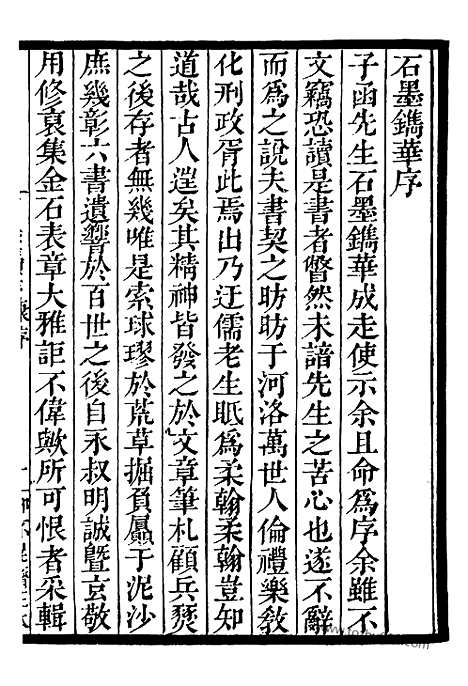 石墨鐫華序
子函先生石墨鐫華成走使示余且命爲序余雖不
文竊恐讀是書者瞥然未諳先生之苦心也遂不辭
而爲之說夫書契之昉昉于河洛萬世人倫禮樂教
化刑政胥此焉出乃迂儒老生眂爲柔翰柔翰豈知
道哉古人遑矣其精神皆發之於文章筆札顧兵燹
之後存者無幾唯是索球璆於荒草掘負贔于泥沙
庶幾彰六書遺響於百世之後自永叔明誠曁玄敬
用修裒集金石表章大雅詎不偉歟所可恨者采輯